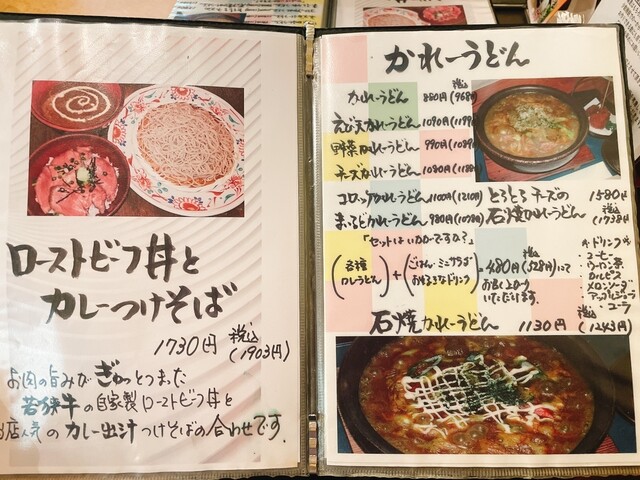 ローストビーフ丼と
カレーつけそば
1730円 税込(1903円)
お肉の旨みがぎゅっとつまった
若狭牛の自家製ローストビーフ丼と
店人気のカレー出汁つけそばの合わせです.
かれーうどん
税込
カレーうどん 880円(968円
えび天カレーうどん 1090円(1199
野菜カレーうどん 990円(1089
チーズカレーうどん 1080円(1188
コロッケカレーうどん 1100円(1210円
まるごとカレーうどん 980円(1078円
とろとろチーズの
石焼カレーうどん
1580円
税込
(1738円
「セットはいかがですか?」
(各種カレーうどん)+(ごはん・ミニサラダ お好きなドリンク)=480円(528円)にて
税込
お召し上がり
いただけます.
*ドリンク*
コーヒー
ウーロン茶
カルピス
メロンソーダ
アップルジュース
コーラ
石焼カレーうどん 1130円 税込(1243円)